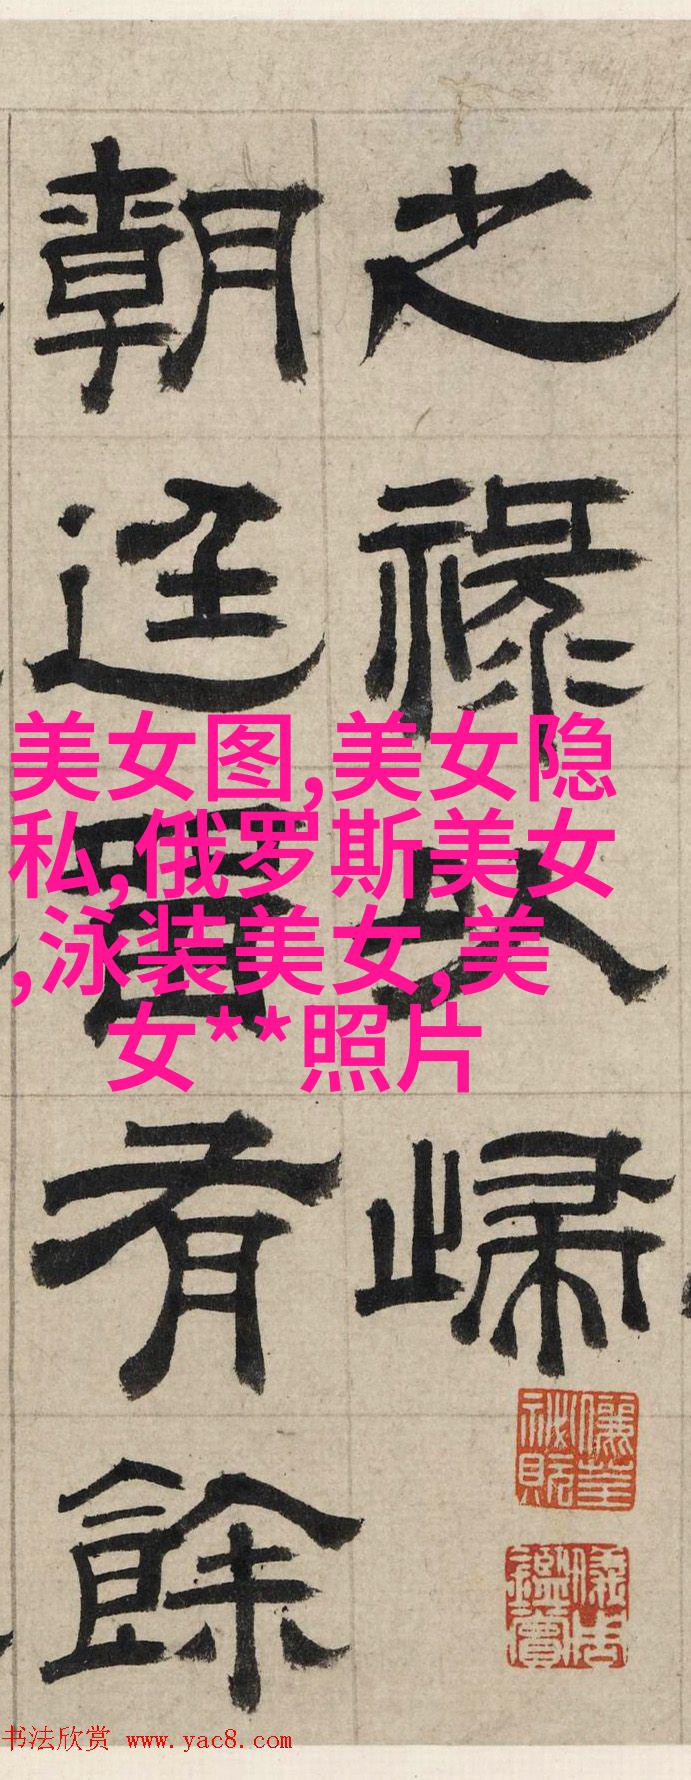 之祿以歸
朝廷有餘
美女图,美女隐
私,俄罗斯美女
,泳装美女,美
女**照片
书法欣赏 www.yac8.com